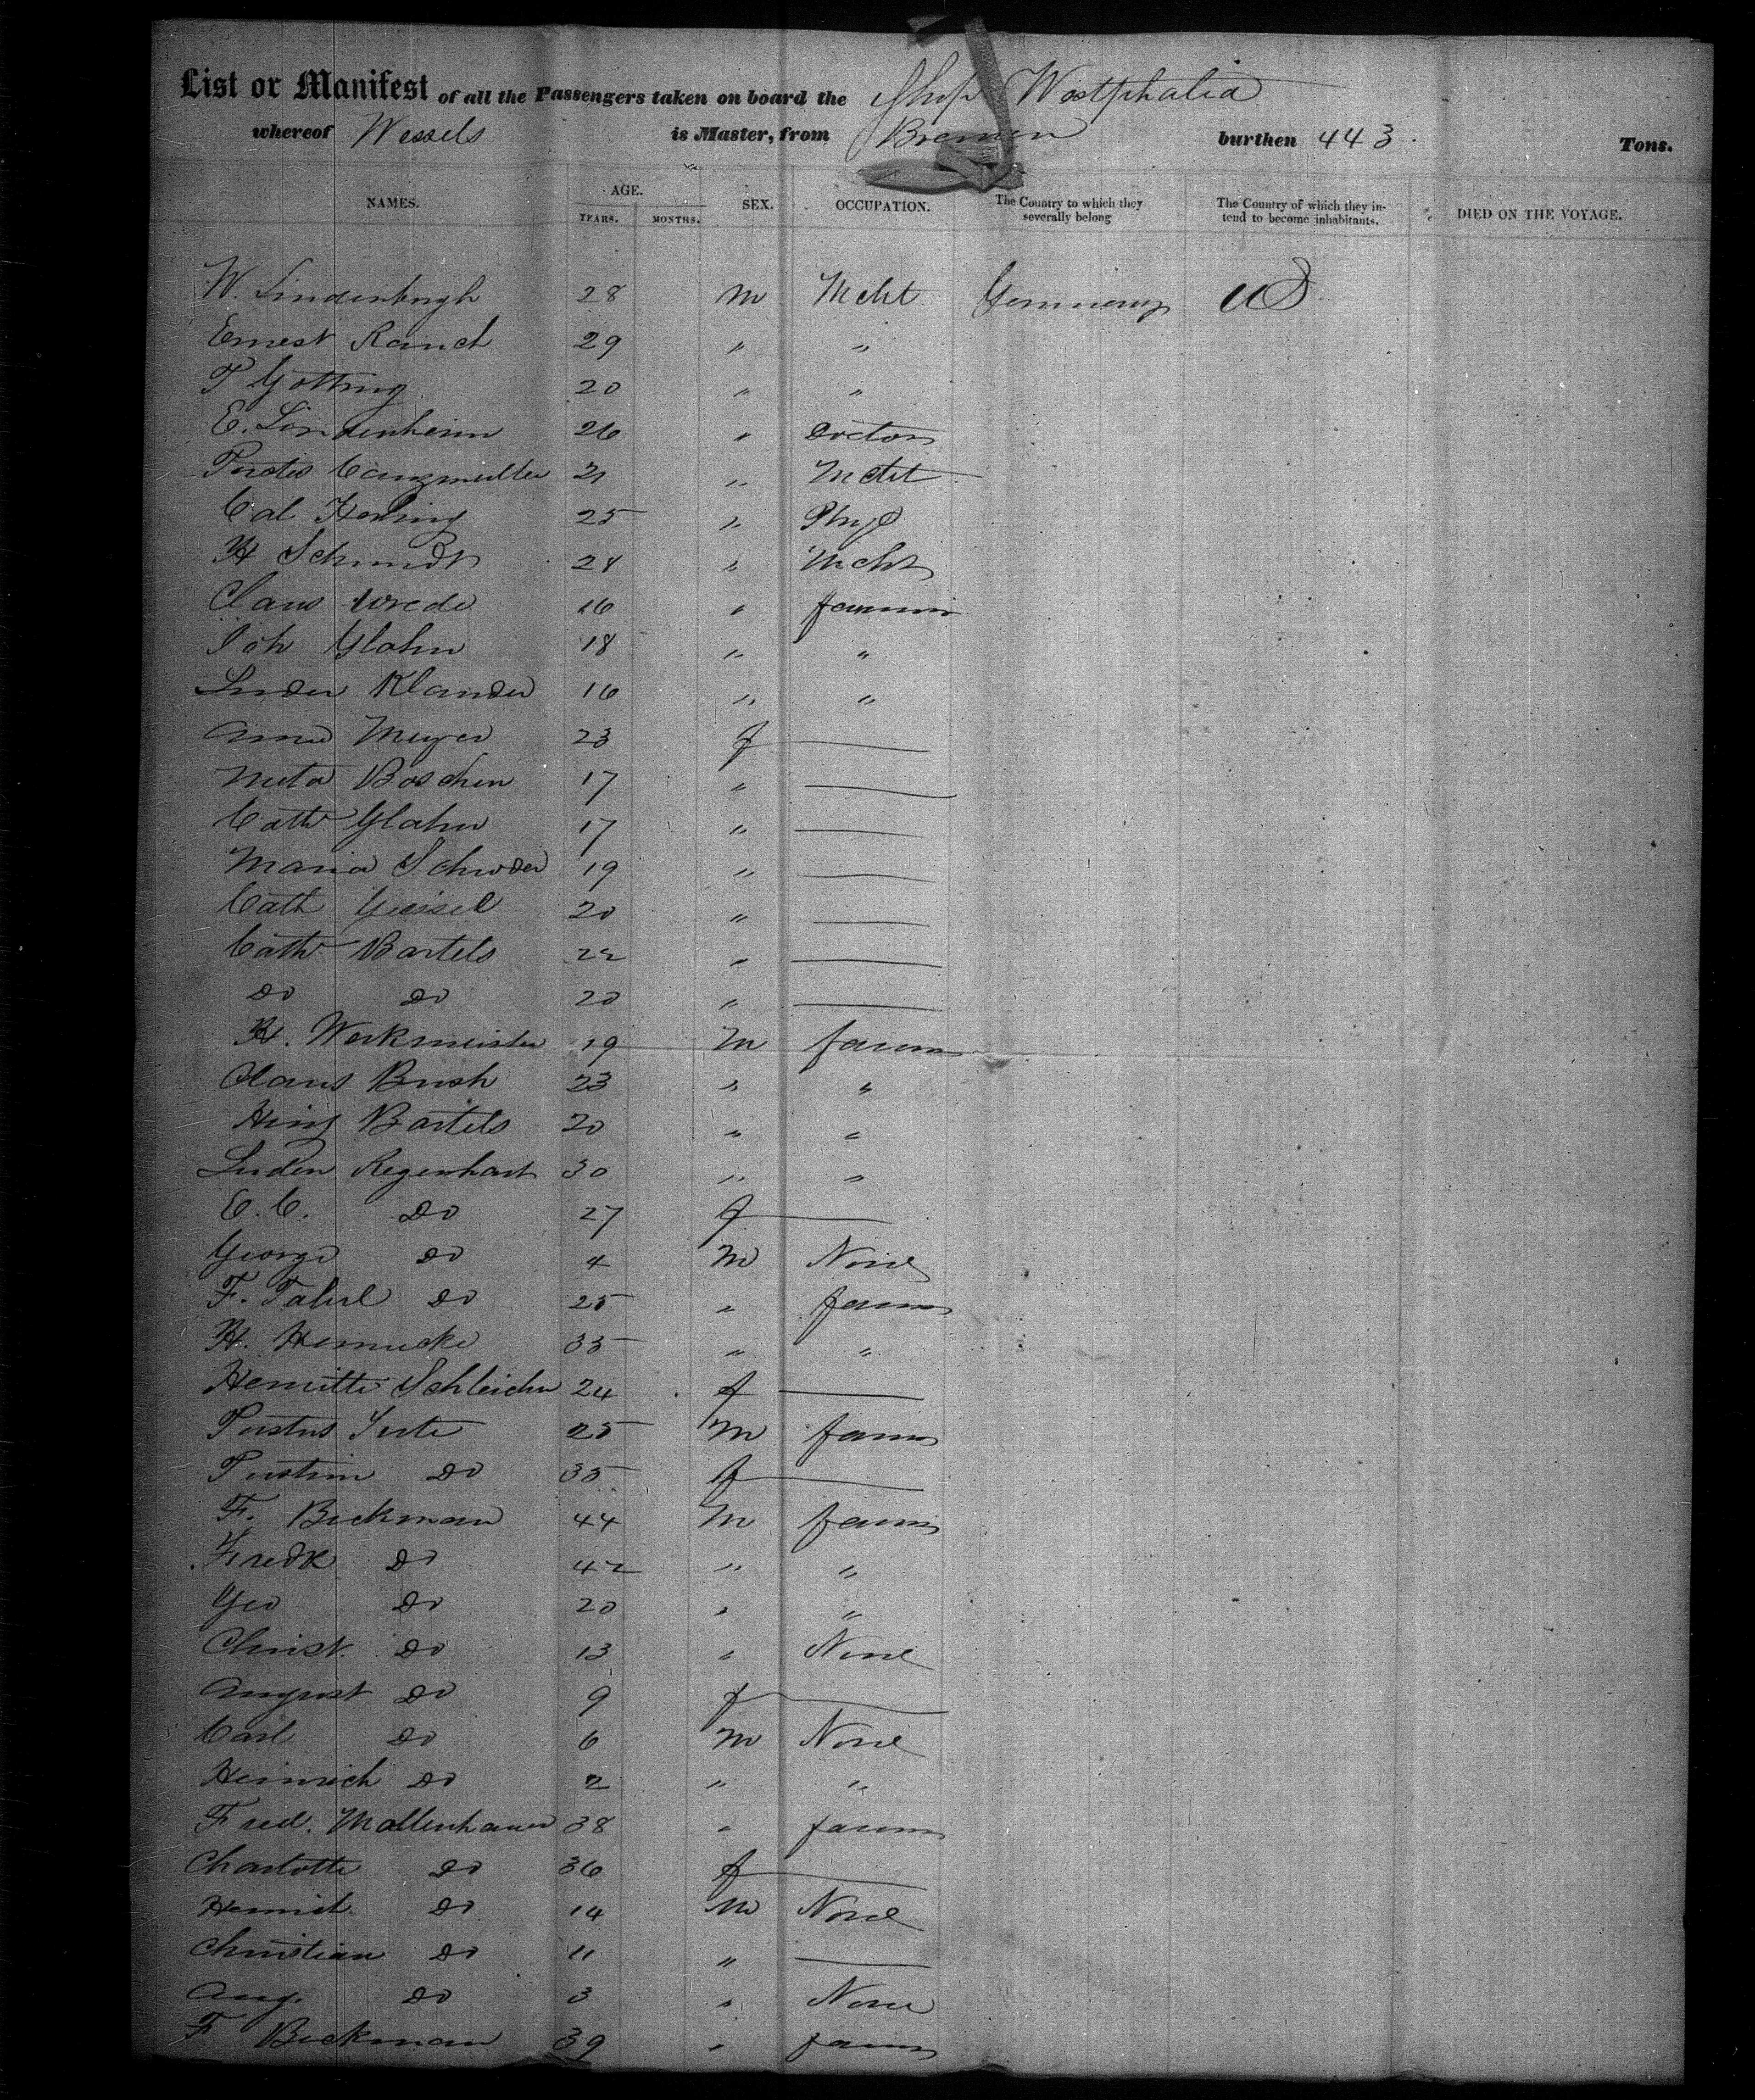 List or Manifest of all the Passengers taken on board the Ship Westphalia
whereof Wessels is Master, from Bremen burthen 443 Tons.
NAMES. AGE. YEARS. MONTHS. SEX. OCCUPATION. The Country to which they severally belong The Country of which they intend to become inhabitants. DIED ON THE VOYAGE.
W. Lindenburgh 28 m Mcht Germany US
Ernest Rauch 29 " "
T Gotting 20 " "
E. Lindenheim 26 " Doctor
21 " Mcht
25 "
H Schmidt 28 " Mcht
Claus Wrede 16 " farmer
Joh Glahn 18 " "
Luder Klander 16 " "
Anna Meyer 23 f —
Meta Boschen 17 " —
Cath Glahn 17 " —
Maria Schroder 19 " —
Cath Geisel 20 " —
Cath Bartels 22 " —
Do Do 20 " —
H. Werkmeister 19 m farmer
Claus Bush 23 " "
Bartels 20 " "
Luder Regenhart 30 " "
E. C. Do 27 f —
George Do 4 m None
F. Do 25 " farmer
H. Hennecke 35 " "
Schleicher 24 f —
Justus 25 m farmer
Justin Do 35 f —
F. Beckman 44 m farmer
Fredk Do 42 " "
Geo Do 20 " "
Christ. Do 13 " None
August Do 9 f —
Carl Do 6 m None
Heinrich Do 2 " "
Fred. Mollenhauer 38 " farmer
Charlotte Do 36 f —
Do 14 m None
Christian Do 11 " —
Aug. Do 3 " None
F Beckman 39 " farmer